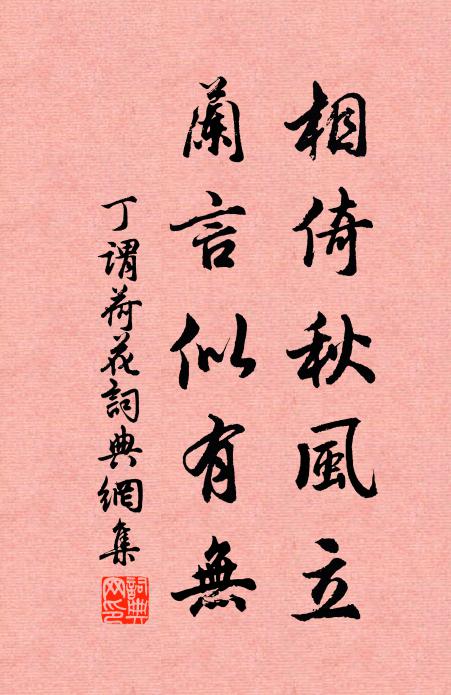 相倚秋風立
蘭言似有無
丁謂荷花詞典網集
詞典網印